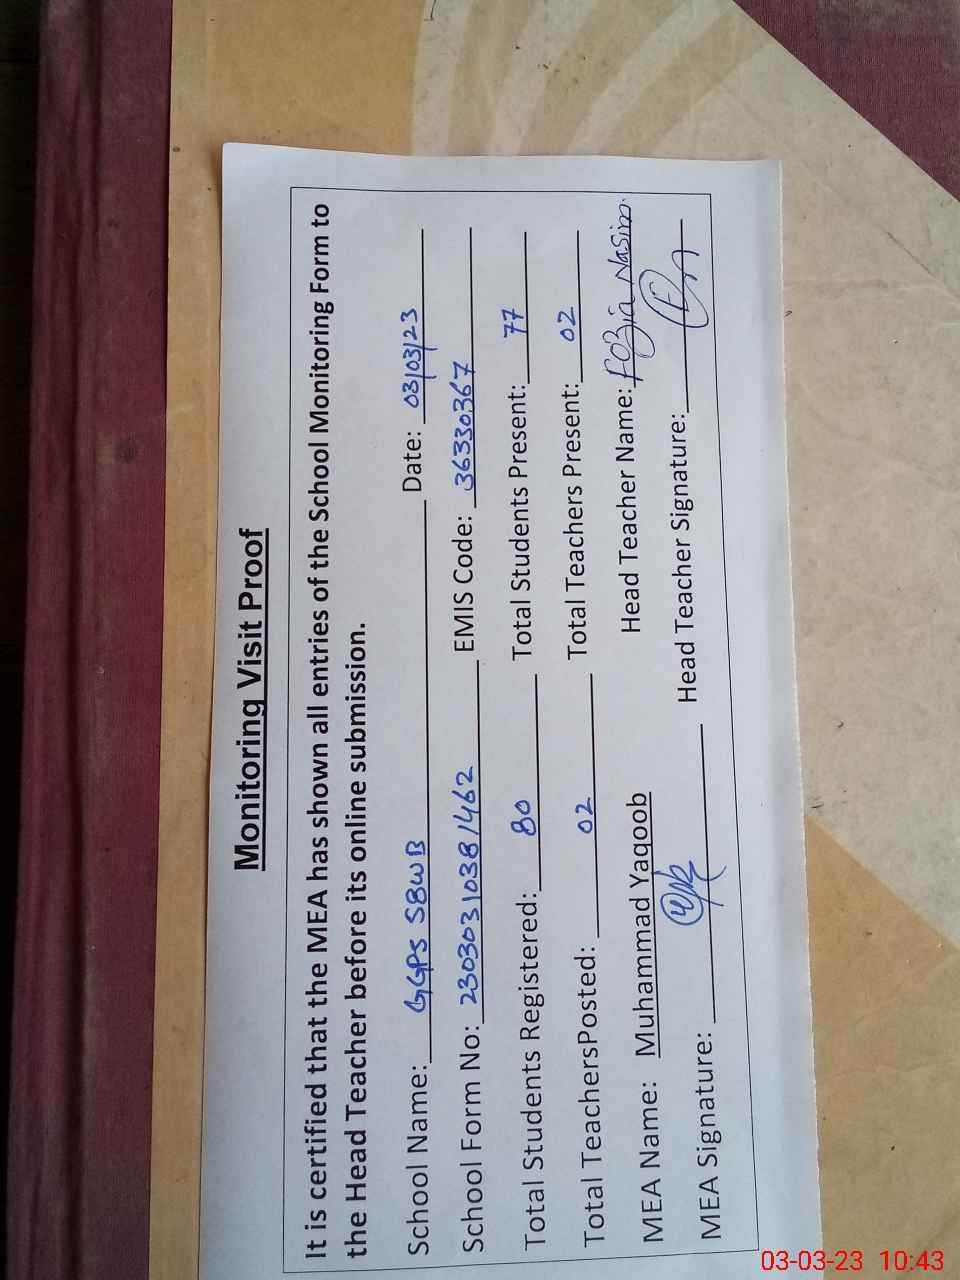 Monitoring Visit Proof
It is certified that the MEA has shown all entries of the School Monitoring Form to
the Head Teacher before its online submission.
School Name: GGPS SBWB Date: 03/03/23
School Form No: 23030310381462 EMIS Code: 36330367
Total Students Registered: 80 Total Students Present: 77
Total TeachersPosted: 02 Total Teachers Present: 02
MEA Name: Muhammad Yaqoob Head Teacher Name: Fozia Nasim
MEA Signature: Head Teacher Signature:
03-03-23 10:43